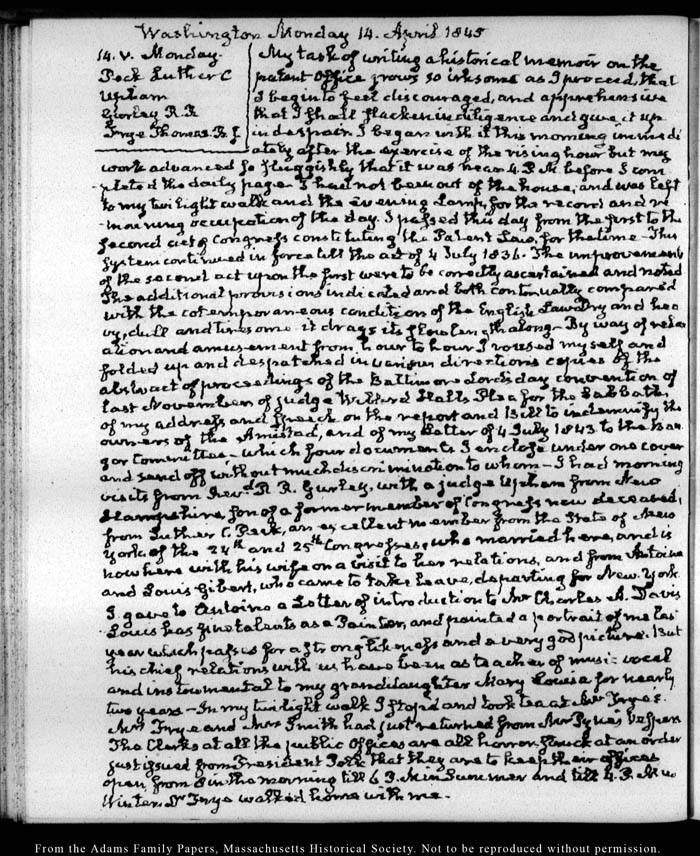 Washington Monday 14. April 1845
14. V. Monday.
Peck Luther C
Upham
Gurley R. R.
Frye Thomas B. J.
My task of writing a historical memoir on the
patent Office grows so irksome as I proceed, that
I begin to feel discouraged, and apprehensive
that I shall slacken in diligence and give it up
in despair. I began with it this morning immedi
ately after the exercise of the rising hour but my
work advanced so sluggishly that it was near 4. P.M. before I com
pleted the daily page. I had not been out of the house, and was left
to my twilight walk and the evening Lamp, for the record and re
-maining occupation of the day. I passed this day from the first to the
second act of Congress constituting the Patent Law, for the time – This
System continued in force till the act of 4 July 1836. The improvements
of the second act upon the first were to be correctly ascertained and noted
The additional provisions indicated and both continually compared
with the cotemporaneous condition of the English Law. Dry and hea
vy, dull and tiresome it drags its slow length along – By way of relax
ation and amusement from hour to hour I roused myself and
folded up and despatched in various directions copies of the
abstract of proceedings of the Baltimore Lord's day convention of
last November of Judge Willard Halls Plea for the Sabbath,
of my address and speech on the report and Bill to indemnify the
owners of the Amistad, and of my Letter of 4 July 1843 to the Ban
gor Committee – which four documents I enclose under one cover
and send off without much discrimination to whom – I had morning
visits from Revd. R. R. Gurley, with a judge Upham from New
Hampshire, son of a former member of Congress now deceased,
from Luther C. Peck, an excellent member from the State of New
York of the 24th and 25th Congresses, who married here, and is
now here with his wife on a visit to her relations, and from Antoine
and Louis Gibert, who came to take leave, departing for New York.
I gave to Antoine a Letter of introduction to Mr Charles A. Davis
Louis has fine talents as a Painter, and painted a portrait of me last
year which passes for a strong likeness and a very good picture. But
his chief relations with us have been as teacher of music vocal
and instrumental to my granddaughter Mary Louisa for nearly
two years – In my twilight walk I stop'd and took tea at Mr Frye's.
Mrs Frye and Mrs Smith had just returned from Mr Pyne's Vespers
The Clerks at all the public Offices are all horror-struck at an order
just issued from President Polk that they are to keep their offices
open from 8 in the morning till 6 P.M in Summer and till 4. P.M in
Winter. Mr Frye walked home with me.
From the Adams Family Papers, Massachusetts Historical Society. Not to be reproduced without permission.